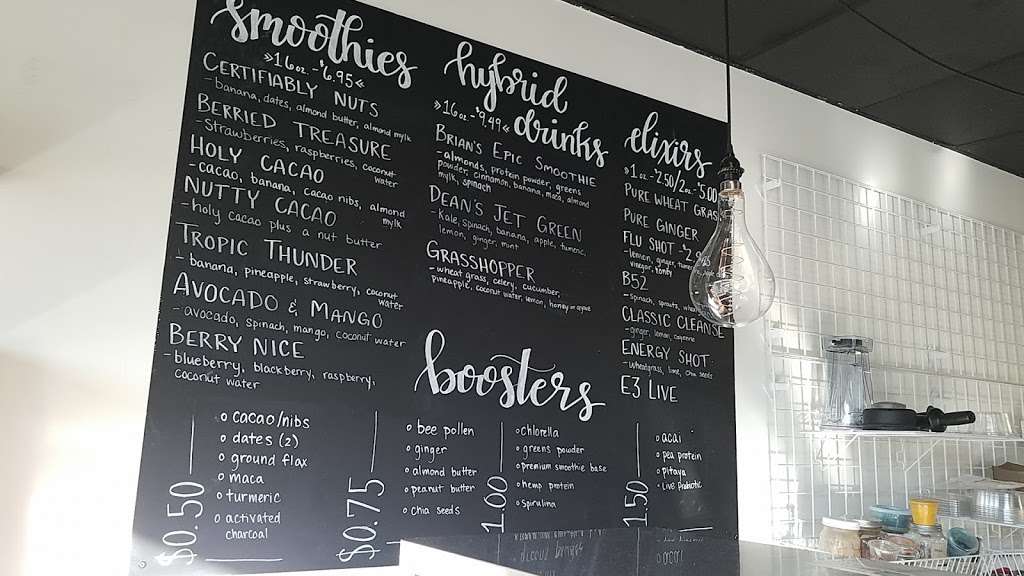 smoothies
»16oz-$6.95«
CERTIFIABLY NUTS
-banana, dates, almond butter, almond mylk
BERRIED TREASURE
-strawberries, raspberries, coconut
water
HOLY CACAO
-cacao, banana, cacao nibs, almond
mylk
NUTTY CACAO
-holy cacao plus a nut butter
TROPIC THUNDER
-banana, pineapple, strawberry, coconut
water
AVOCADO & MANGO
-avocado, spinach, mango, coconut water
BERRY NICE
-blueberry, blackberry, raspberry,
coconut water
hybrid
drinks
»16oz-$9.49«
BRIAN'S EPIC SMOOTHIE
-almonds, protein powder, greens
powder, cinnamon, banana, maca, almond
mylk, spinach
DEAN'S JET GREEN
-Kale, spinach, banana, apple, tumeric,
lemon, ginger, mint
GRASSHOPPER
-wheat grass, celery, cucumber,
pineapple, coconut water, lemon, honey or agave
elixirs
»1oz-$2.50/2oz-$5.00
PURE WHEAT GRASS
PURE GINGER
FLU SHOT
-lemon, ginger,
vinegar, honey
B52
-spinach, sprouts,
CLASSIC CLEANSE
-ginger, lemon, cayenne
ENERGY SHOT
-wheatgrass, lime, chia seeds
E3 LIVE
boosters
$0.50
o cacao/nibs
o dates (2)
o ground flax
o maca
o turmeric
o activated
charcoal
$0.75
o bee pollen
o ginger
o almond butter
o peanut butter
o chia seeds
1.00
o chlorella
o greens powder
o premium smoothie base
o hemp protein
o spirulina
1.50
o acai
o pea protein
o pitaya
o Live Probiotic